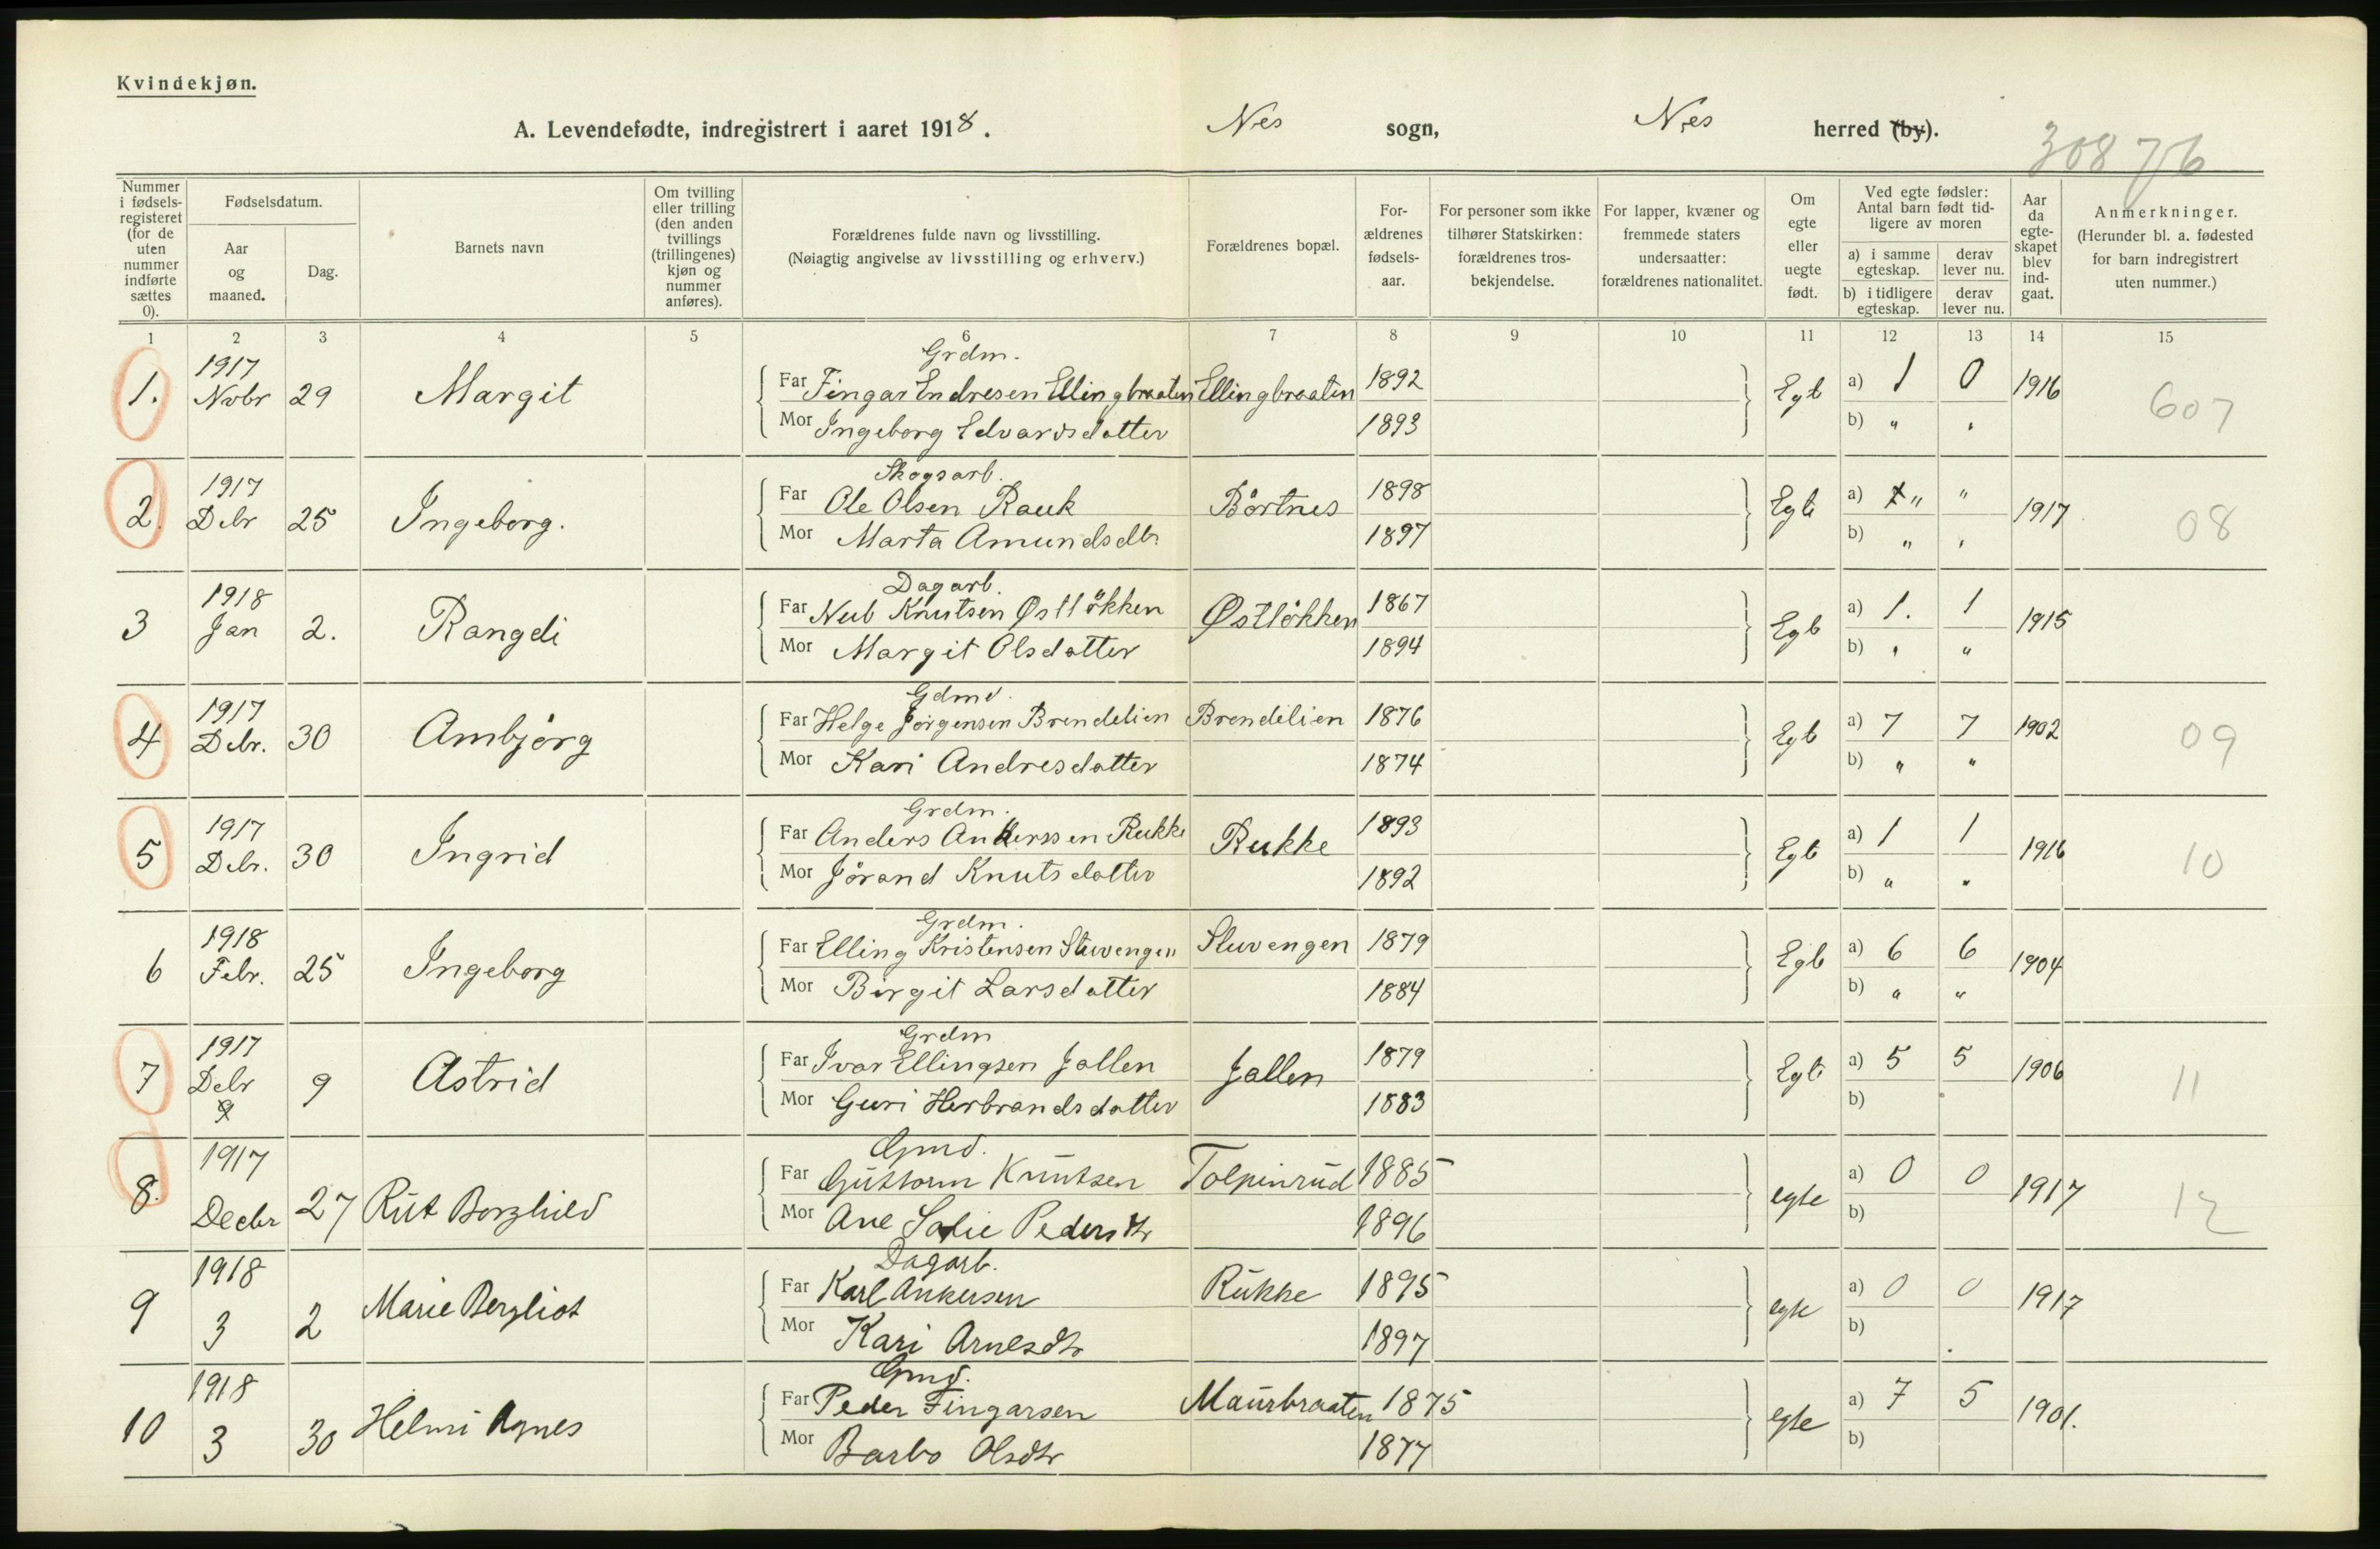 Kvindekjøn.
A. Levendefødte, indregistrert i aaret 1918. Nes sogn, Nes herred (by).
30876
Nummer i fødselsregisteret (for de uten nummer indførte sættes 0).
Fødselsdatum.
Aar og maaned.
Dag.
Barnets navn
Om tvilling eller trilling (den anden tvillings (trillingenes) kjøn og nummer anføres).
Forældrenes fulde navn og livsstilling.
(Nøiagtig angivelse av livsstilling og erhverv.)
Forældrenes bopæl.
Forældrenes fødselsaar.
For personer som ikke tilhører Statskirken: forældrenes trosbekjendelse.
For lapper, kvæner og fremmede staters undersaatter: forældrenes nationalitet.
Om egte eller uegte født.
Ved egte fødsler: Antal barn født tidligere av moren
a) i samme egteskap. derav lever nu.
b) i tidligere egteskap. derav lever nu.
Aar da egteskapet blev indgaat.
Anmerkninger.
(Herunder bl. a. fødested for barn indregistrert uten nummer.)
1 2 3 4 5 6 7 8 9 10 11 12 13 14 15
Grdm.
1. 1917 Nobr 29 Margit Far Fingar Endresen Ellingbraaten Ellingbraaten 1892 Egt a) 1 0 1916 607
Mor Ingeborg Edvardsdatter 1893 b) " "
Skogsarb.
2. 1917 Debr 25 Ingeborg. Far Ole Olsen Rauk Börtnes 1898 Egt a) " " 1917 08
Mor Marta Amundsdtr. 1897 b) " "
Dagarb.
3 1918 Jan 2. Rangdi Far Nub Knutsen Østlökken Østlökken 1867 Egt a) 1. 1 1915
Mor Margit Olsdatter 1894 b) " "
Gdmd.
4 1917 Debr. 30 Ambjörg Far Helge Jörgensen Brendelien Brendelien 1876 Egt a) 7 7 1902 09
Mor Kari Andresdatter 1874 b) " "
Grdm.
5 1917 Debr. 30 Ingrid Far Anders Ankerssen Rukke Rukke 1893 Egt a) 1 1 1916 10
Mor Jörand Knutsdatter 1892 b) " "
Grdm.
6 1918 Febr. 25 Ingeborg Far Elling Kristensen Stuvengen Stuvengen 1879 Egt a) 6 6 1904
Mor Birgit Larsdatter 1884 b) " "
Grdm
7 1917 Debr 9 9 Astrid Far Ivar Ellingsen Jallen Jallen 1879 Egt a) 5 5 1906 11
Mor Guri Herbrandsdatter 1883 b)
Gmd.
8. 1917 Decbr 27 Rut Borghild Far Guttorm Knutsen Tolpinrud 1885 egte a) 0 0 1917 12
Mor Ane Sofie Pedersdtr 1896 b)
Dagarb.
9 1918 3 2 Marie Bergliot Far Karl Ankersen Rukke 1895 egte a) 0 0 1917
Mor Kari Arnesdtr 1897 b)
Gmd.
10 1918 3 30 Helmi Agnes Far Peder Fingarsen Maurbraaten 1875 egte a) 7 5 1901.
Mor Barbo Olsdtr 1877 b)